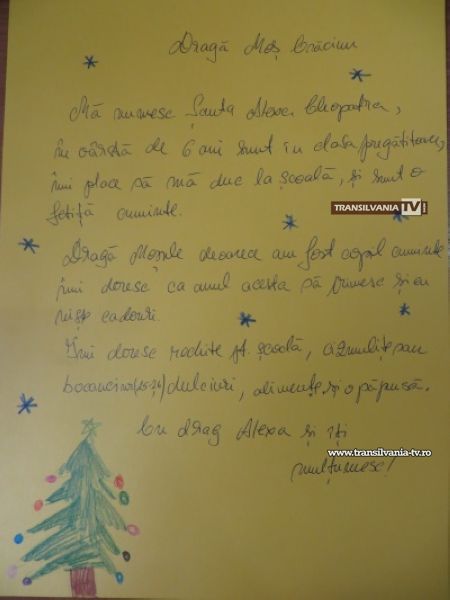 Dragă Moș Crăciun
Mă numesc Șanta Alexa Cleopatra,
în vârstă de 6 ani sunt în clasa pregătitoare,
îmi place să mă duc la școală, și sunt o
fetiță cuminte.
TRANSILVANIA TV
Dragă Moșule deoarece am fost copil cuminte
îmi doresc ca anul acesta să primesc și eu
niște cadouri.
Îmi doresc rochițe pt. școală, cizmulițe sau
bocancinoi(25-26) dulciuri, alimente, și o păpușă.
Cu drag Alexa și îți
www.transilvania-tv.ro
mulțumesc!